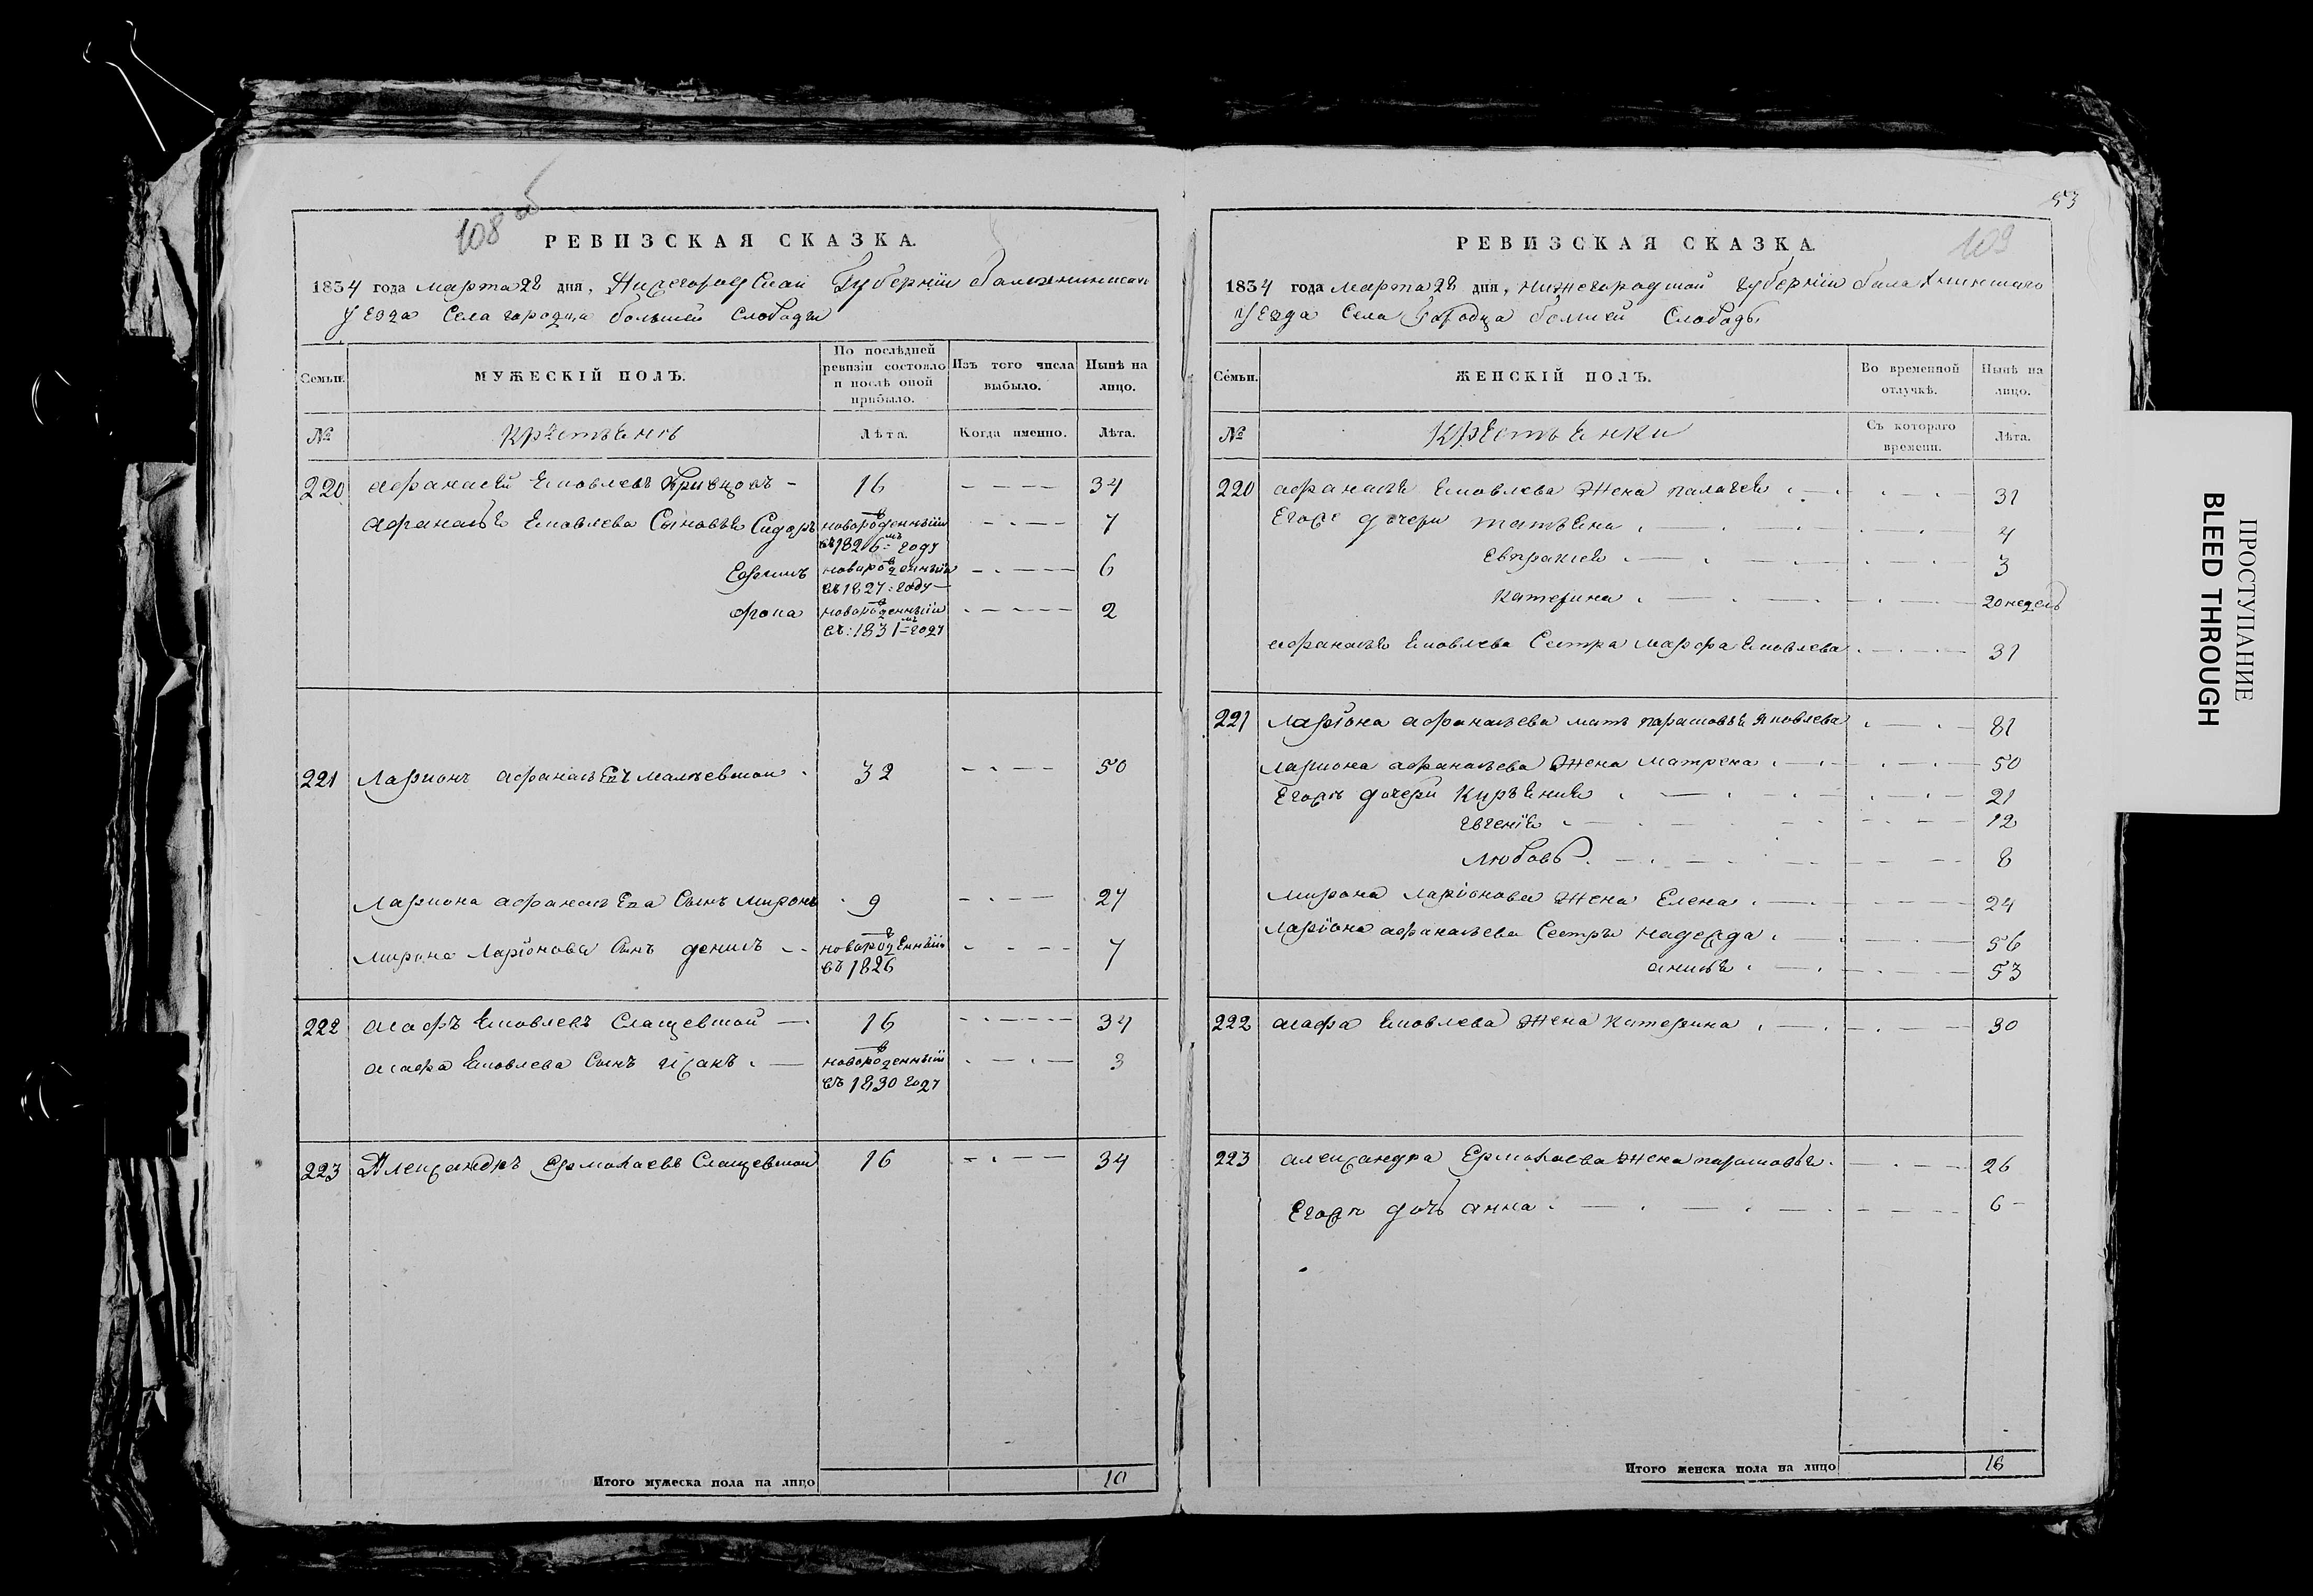 108 об
РЕВИЗСКАЯ СКАЗКА.
1834 года марта 28 дня, Нижегородской Губерніи балахнинскаго
уезда Села городца большей Слободы
Семьи.
МУЖЕСКІЙ ПОЛЪ.
По послѣдней ревизіи состояло и послѣ оной прибыло.
Изъ того числа выбыло.
Нынѣ на лицо.
№
Крестьянѣ
Лѣта.
Когда именно.
Лѣта.
220 афанасей Яковлевъ Кривцовъ 16 34
афанасья Яковлева Сыновья Сидаръ новорожденный 7
въ 1826мъ году
Ефимъ новорожденный 6
въ 1827: году
фока новорожденный 2
въ: 1831мъ году
221 Ларионъ афанасьевъ 32 50
Лариона афанасьева Сынъ миронъ 9 27
мирона Ларіонова Сынъ денисъ новорожденный 7
въ 1826
222 асафъ Яковлевъ Слащевской 16 34
асафа Яковлева Сынъ исакъ новорожденный 3
въ 1830 году
223 Александръ Ермолаевъ Слащевской 16 34
Итого мужеска пола на лицо 10
53
109
РЕВИЗСКАЯ СКАЗКА.
1834 года марта 28 дня, нижегородской губерніи балахнинскаго
уезда Села Городца большей Слободы
Семьи.
ЖЕНСКІЙ ПОЛЪ.
Во временной отлучкѣ.
Нынѣ на лицо.
№
Крестьянки
Съ котораго времени.
Лѣта.
220 афанасья Яковлева Жена палагея 31
Егоже дочери татьяна 4
Евпраксея 3
Катерина 20 недель
афанасья Яковлева Сестра марфа Яковлева 31
221 Ларіона афанасьева мать парасковья Яковлева 81
Лариона афанасьева Жена матрена 50
Егожъ дочери 21
евгенія 12
любовь 8
мирона Ларіонова Жена Елена 24
Ларіона афанасьева Сестры надежда 56
анисья 53
222 асафа Яковлева Жена катерина 30
223 александра Ермолаева жена парасковья 26
Егожъ дочь анна 6
Итого женска пола на лицо 16
ПРОСТУПАНИЕ
BLEED THROUGH